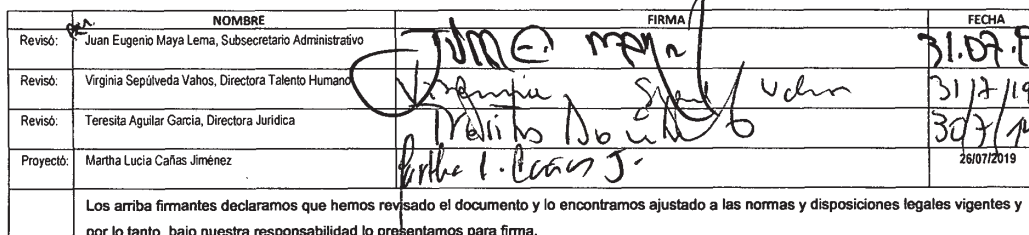 NOMBRE FIRMA FECHA
Revisó: Juan Eugenio Maya Lema, Subsecretario Administrativo
Revisó: Virginia Sepúlveda Vahos, Directora Talento Humano Virginia 31/7/19
Revisó: Teresita Aguilar García, Directora Jurídica 30/7/19
Proyectó: Martha Lucía Cañas Jiménez Martha L. Cañas J. 26/07/2019
Los arriba firmantes declaramos que hemos revisado el documento y lo encontramos ajustado a las normas y disposiciones legales vigentes y
por lo tanto, bajo nuestra responsabilidad lo presentamos para firma.